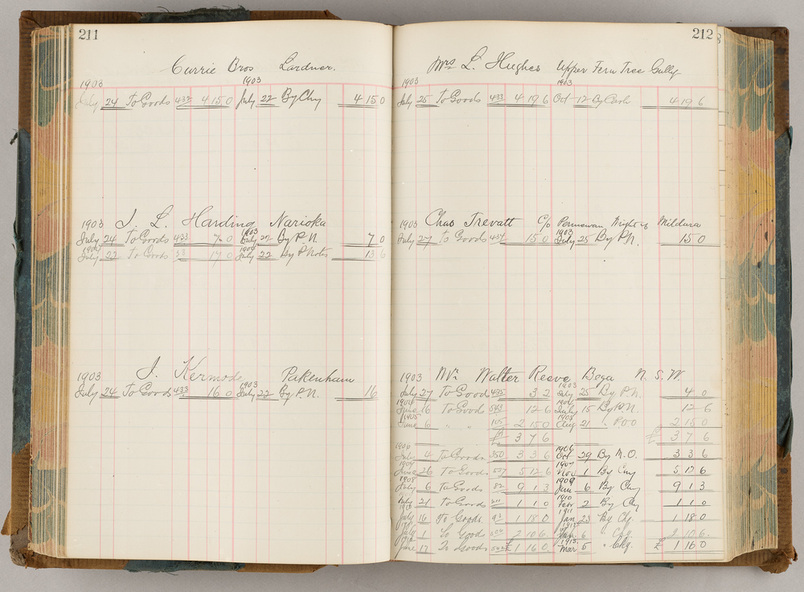 211
Currie Bros Lardner
1903 1903
July 24 To Goods 433 4 15 0 July 22 By Chq 4 15 0
1903 J. L. Harding Narioka
July 24 To Goods 433 7 0 July 22 By P.N. 7 0
July 23 To Goods July 22 By P Notes 13 6
1903 J. Kermode Pakenham
1903
July 24 To Goods 433 16 0 July 22 By P.N. 16
212
Mrs L. Hughes Upper Fern Tree Gully
1903 1903
July 25 To Goods 433 4 19 6 Oct 12 By Cash 4 19 6
1903 Chas Trevatt C/o Permewan Wright Mildura
1903
July 27 To Goods 434 15 0 July 25 By P.N. 15 0
1903 Walter Reeve Boga N. S. W.
1903
July 27 To Goods 435 3 2 July 25 By P.N. 4 0
June 16 To Goods 12 6 July 15 By P.N. 12 6
June 6 " " 105 2 15 0 Aug 21 " P.O.O 2 15 0
£ 3 7 6 £ 3 7 6
July 4 To Goods 350 3 3 6 Oct 29 By M.O. 3 3 6
June 26 To Goods 5 12 6 Nov 1 By Chq 5 12 6
July 6 To Goods 82 9 1 3 Jan 6 By Chq 9 1 3
July 21 To Goods 1 1 0 2 By Chq 1 1 0
July 16 To Goods 1 18 0 Jan 23 By Chq. 1 18 0
July 1 To Goods 10 6 Jan 6 " Chq 10 6
June 17 To Goods £ 1 16 0 Mar 5 " Chq. £ 1 16 0